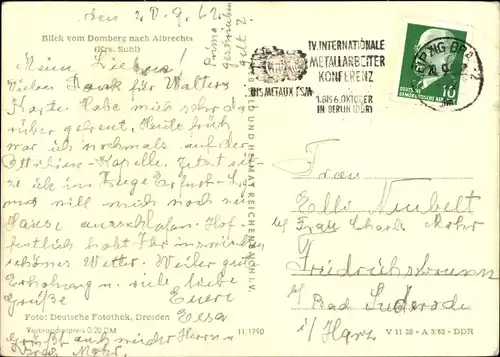 den 20.9.62
Prima
geschrieben
gelt?
Blick vom Domberg nach Albrechts
(Krs. Suhl)
Mein Lieber!
Vielen Dank für Walters
Karte. Habe mich sehr dar
über gefreut. Heute früh
war ich nochmals auf der
Ottilien-Kapelle. Jetzt sitze
ich im Zuge Erfurt-
will mich noch zu
Hause ausschlafen. Hof-
fentlich habt Ihr inzwischen
schönes Wetter. Weiter gute
Erholung u. viele liebe
Grüße Eure
Elsa
Foto: Deutsche Fotothek, Dresden
Verbraucherpreis 0.20 DM
11/1790
Grüßt auch wieder Herrn u.
Frau Mohr.
BILD UND HEIMAT REICHENBACH I. V.
IV. INTERNATIONALE
METALLARBEITER
KONFERENZ
DIS METAUX FSM
1. BIS 6. OKTOBER
IN BERLIN (DDR)
LEIPZIG BPA
DEUTSCHE
DEMOKRATISCHE REP.
10
Frau
Elli Neubelt
b/ Frau Charl. Mohr
Friedrichsbrunn
b/ Bad Suderode
i/ Harz
V 11 28 - A 3/62 - DDR